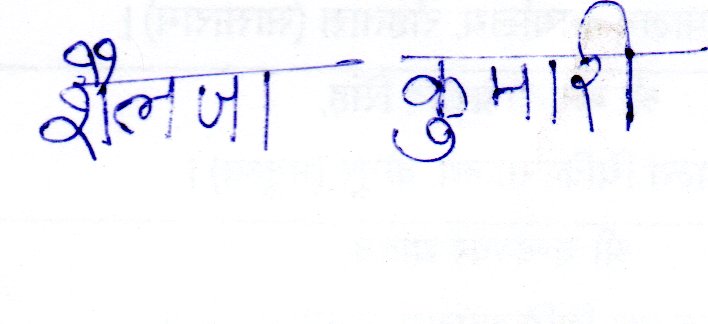 शैलजा कुमारी